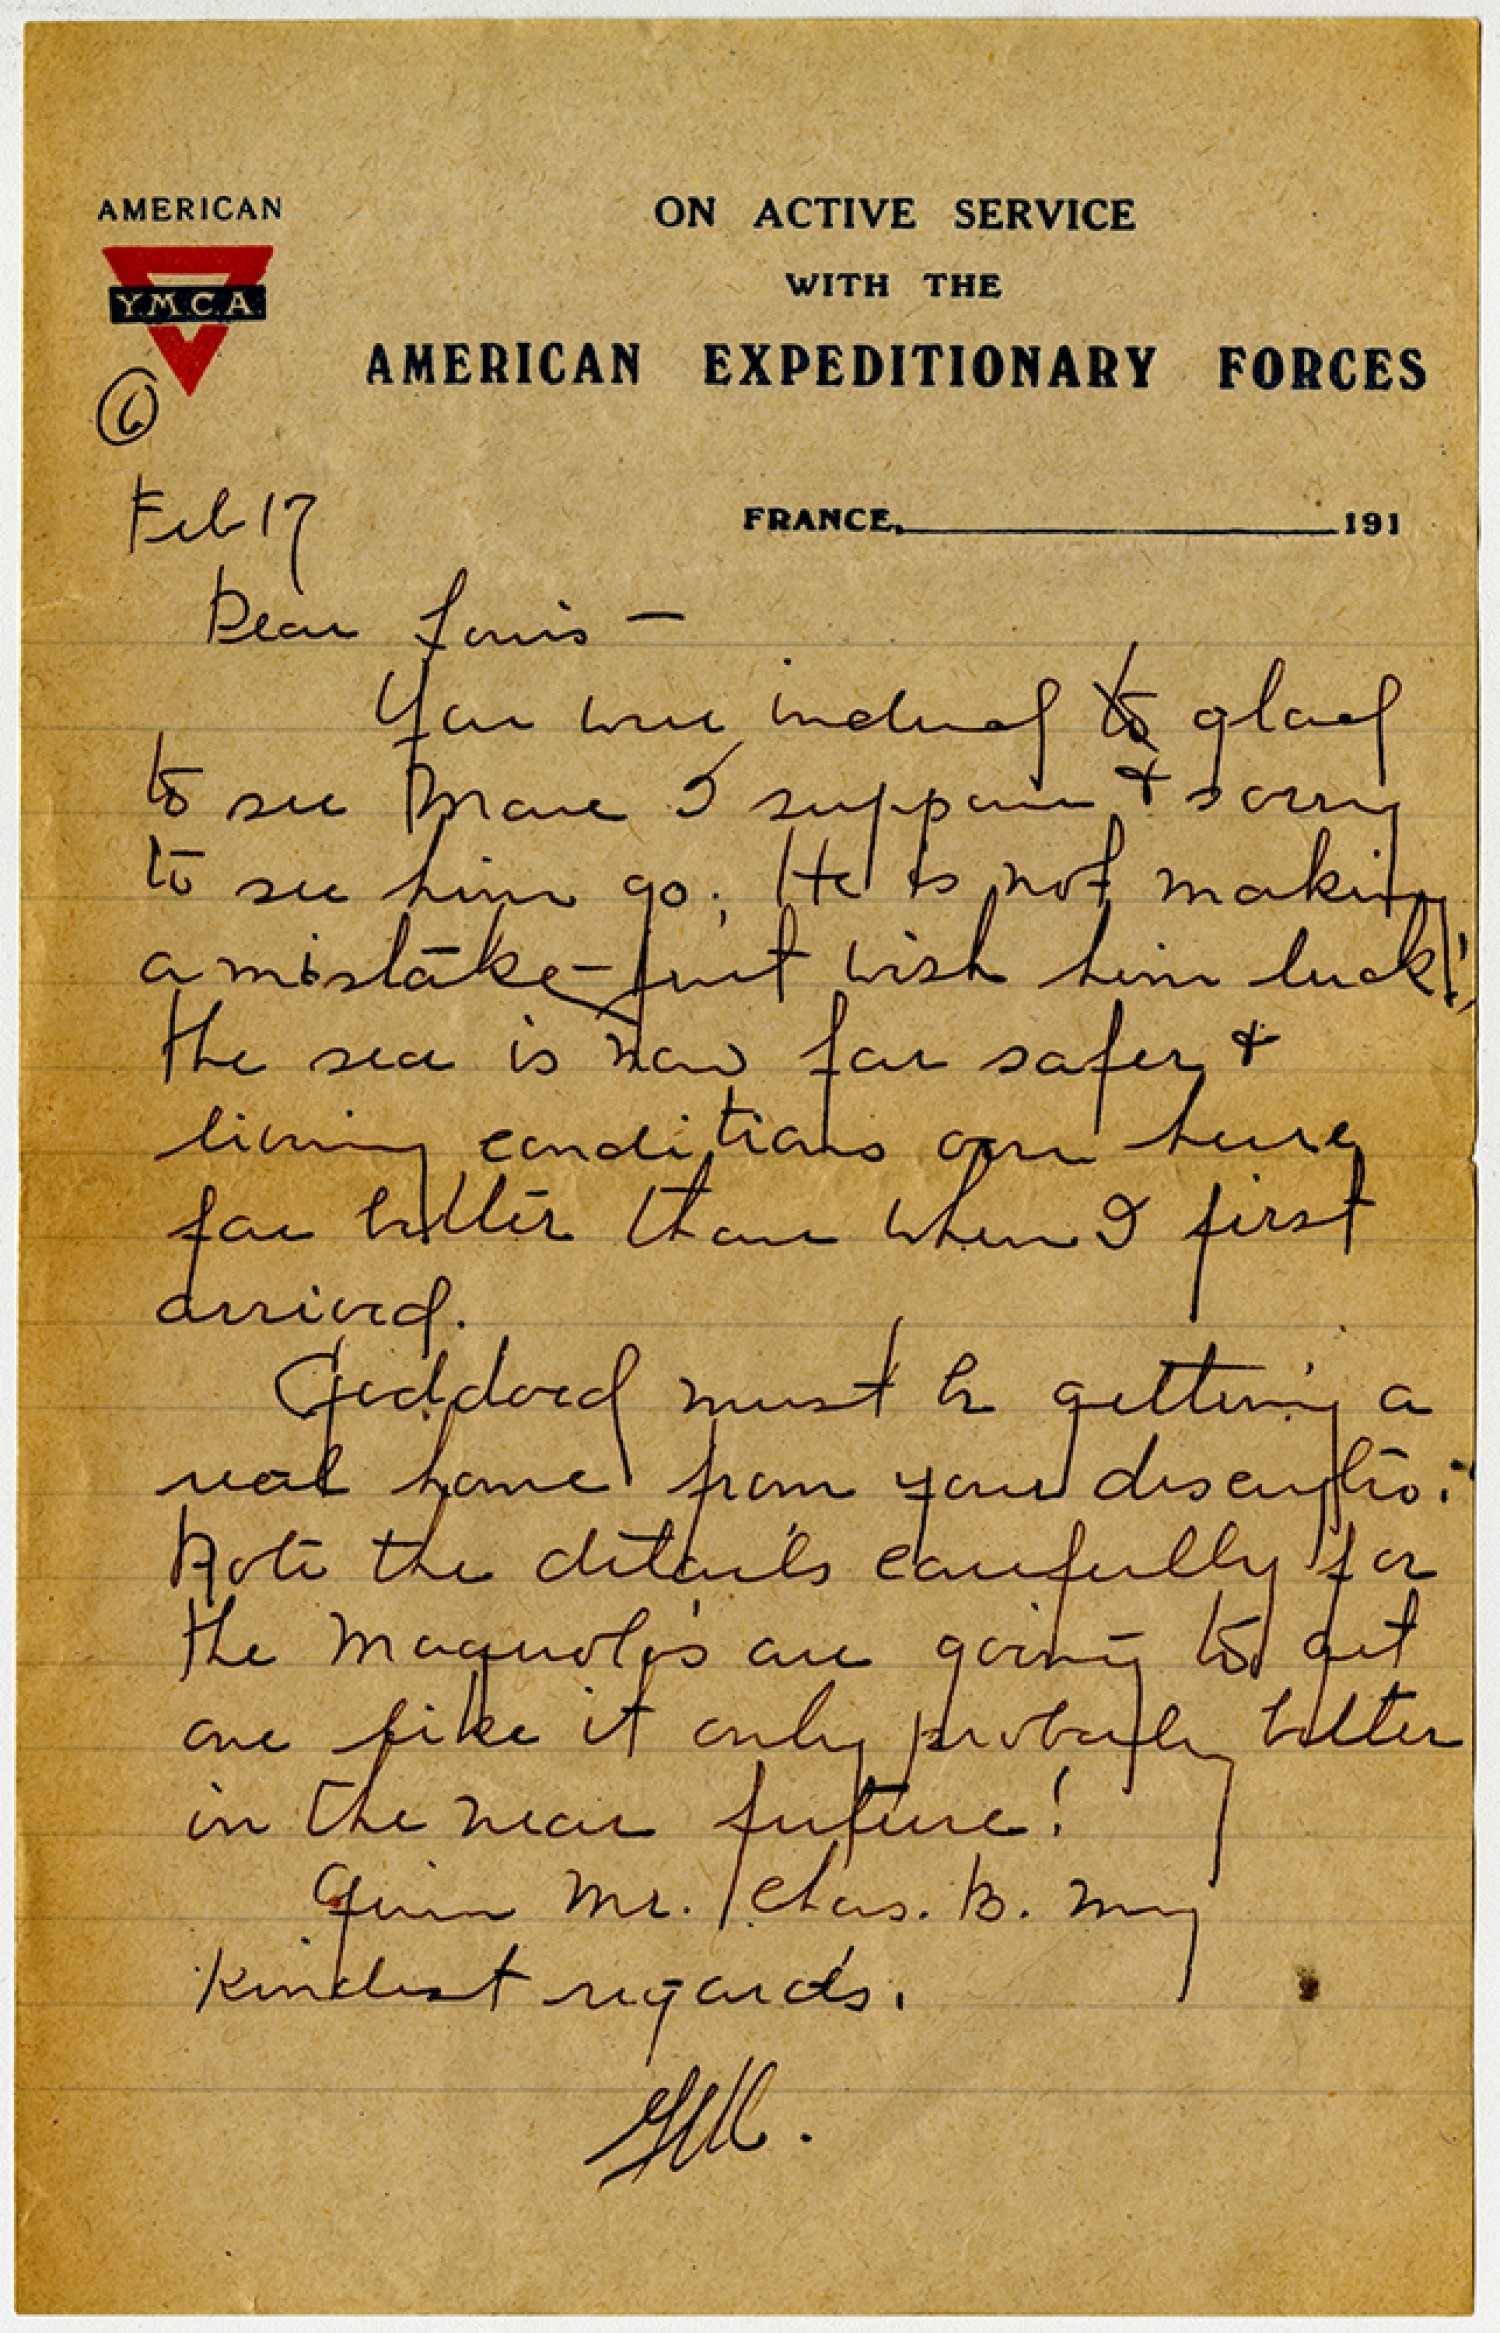 AMERICAN
Y.M.C.A.
ON ACTIVE SERVICE
WITH THE
AMERICAN EXPEDITIONARY FORCES
6
Feb 17
FRANCE, 191
Dear Louis —
You were indeed to glad
to see Mare I suppose & sorry
to see him go. He is not making
a mistake – just wish him luck!
the sea is now far safer &
living conditions over here
far better than when I first
arrived.
Goddard must be getting a
real home from your descriptio:
Note the details carefully for
the Magnolis are going to get
one like it only probably better
in the near future!
Given Mr. Chas. B. my
Kindest regards.